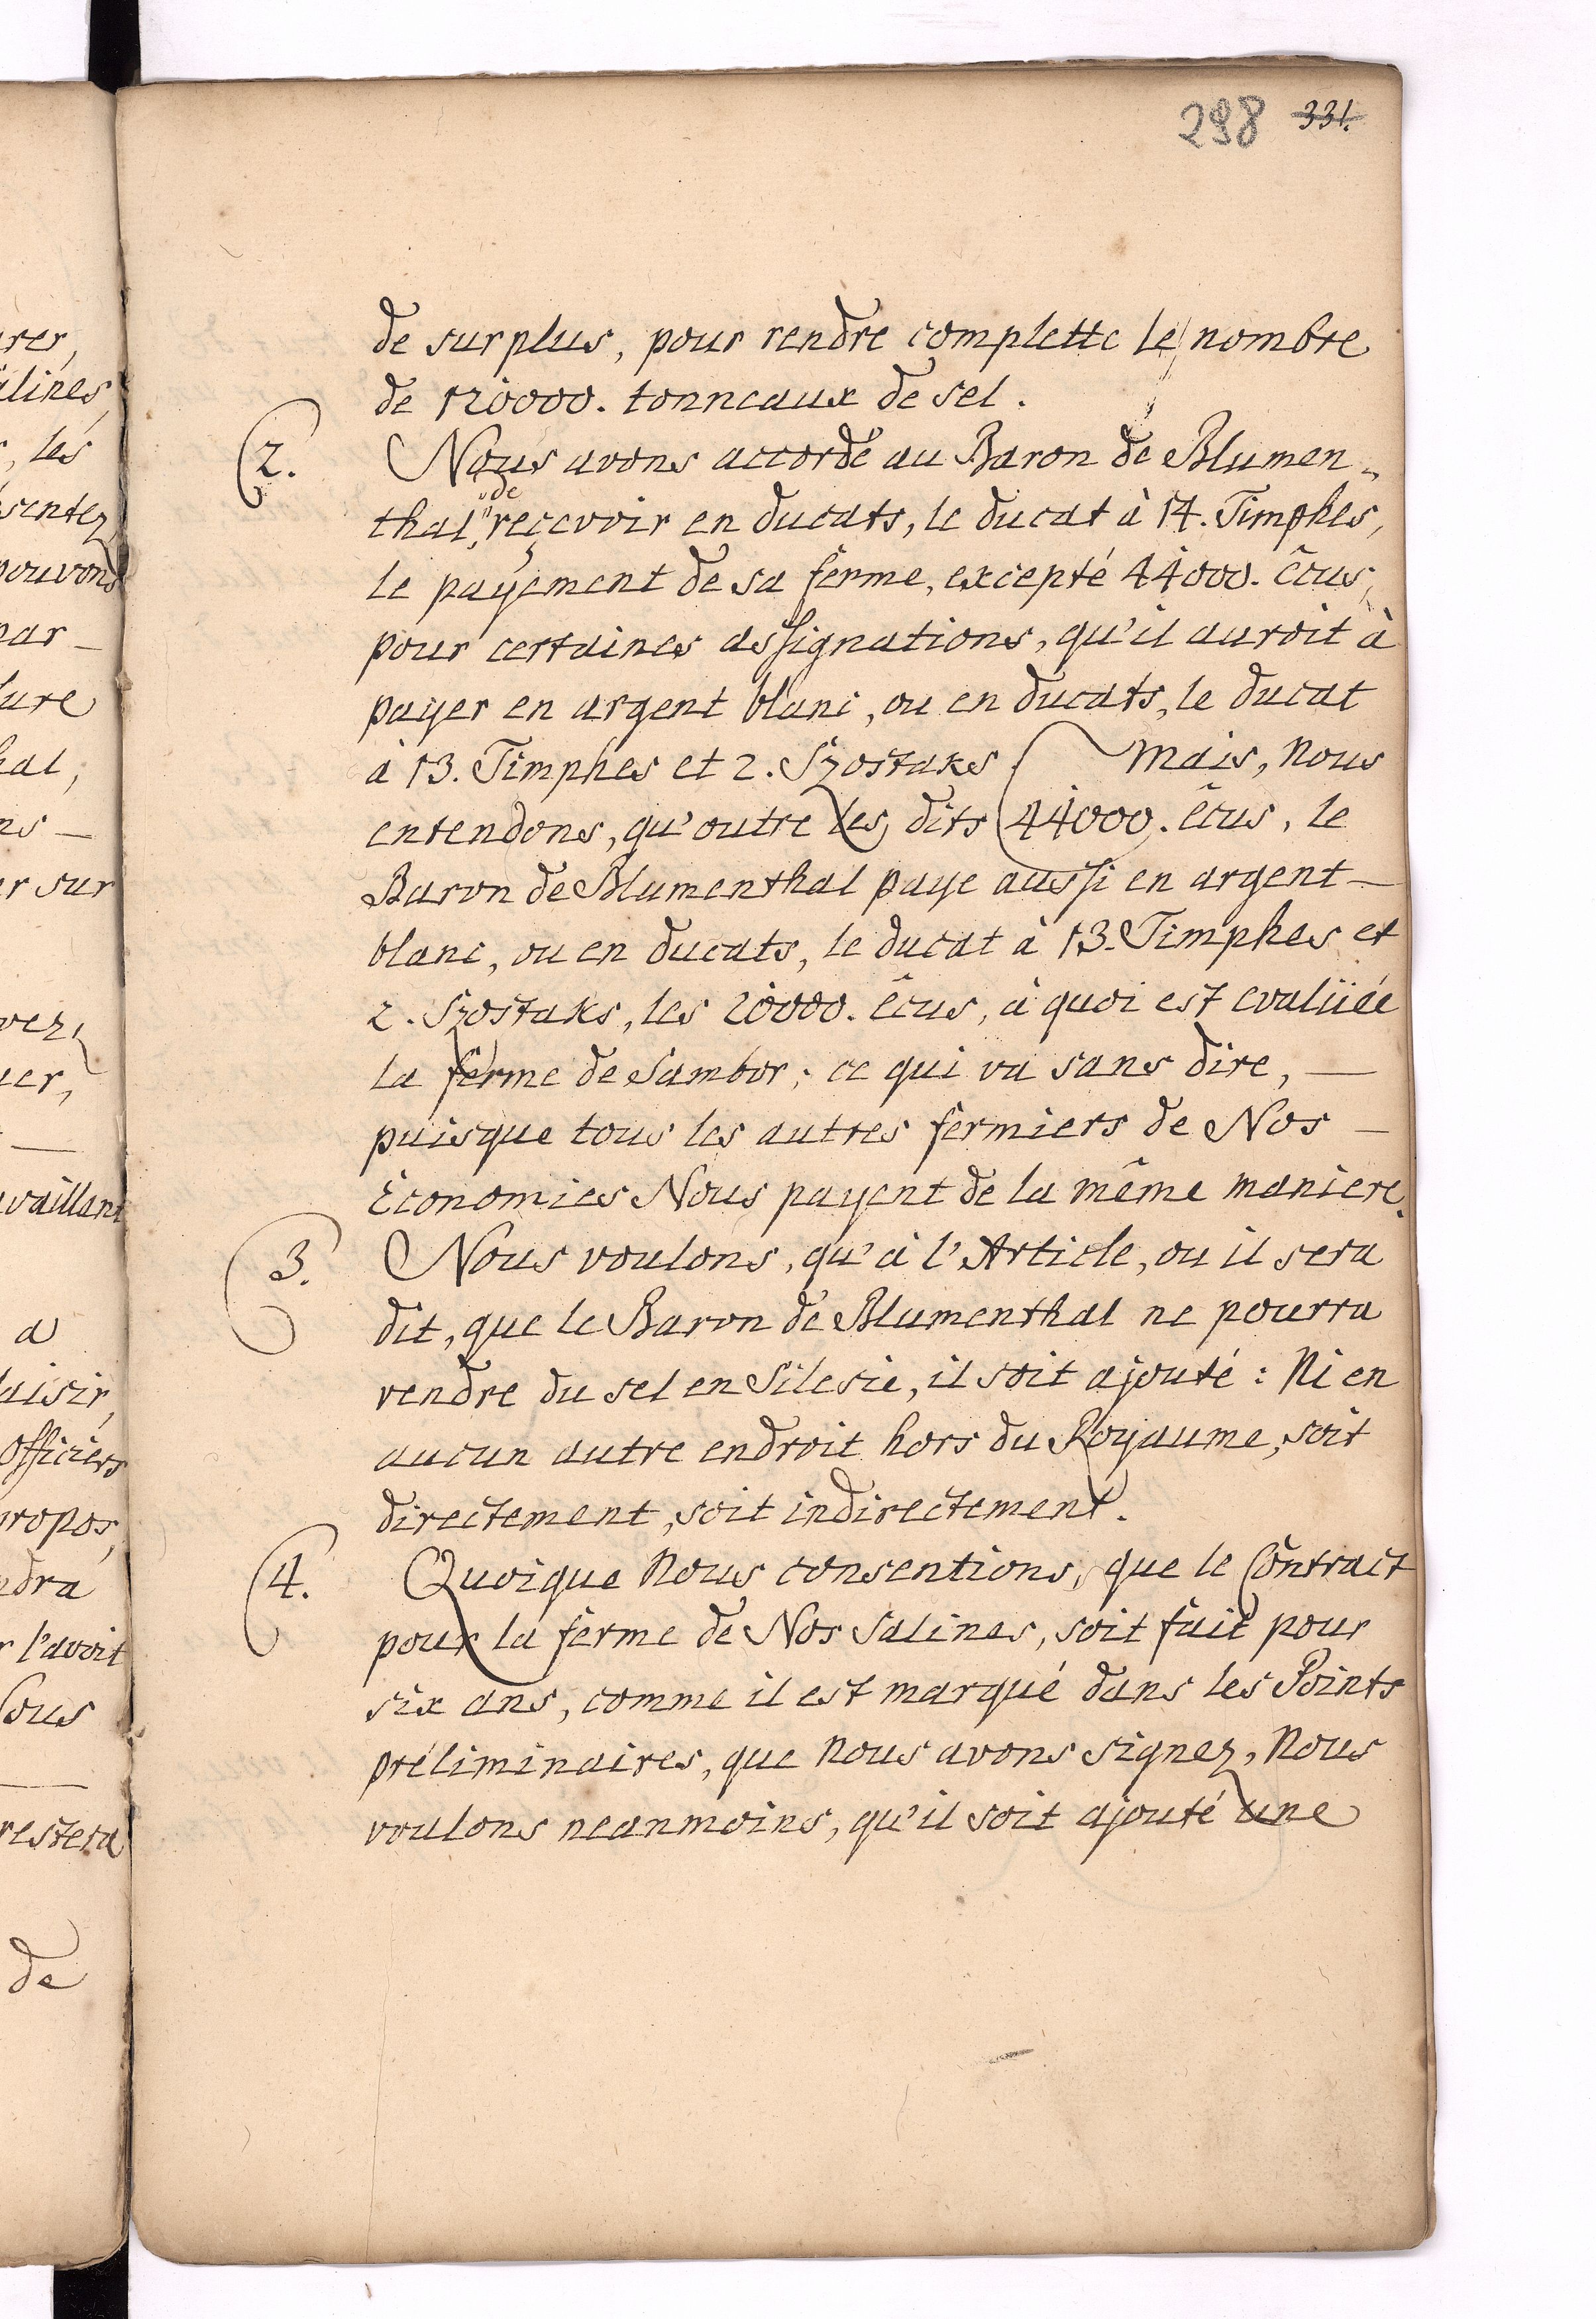 298 331.
de surplus, pour rendre complette le nombre
de 120000. tonneaux de sel.
2. Nous avons accordé au Baron de Blumen-
de
thal, reçevoir en ducats, le ducat à 14. Timphes,
le payement de sa ferme, excepté 44000. êcus,
pour certaines assignations, qu'il auroit à
payer en argent blanc, ou en ducats, le ducat
à 13. Timphes et 2. Szostaks ( Mais, Nous
entendons, qu'outre les dits 44000. êcus, le
Baron de Blumenthal paye aussi en argent —
blanc, ou en ducats, le ducat à 13. Timphes et
2. Szostaks, les 20000. êcus, à quoi est evalüée
la ferme de Sambor; ce qui va sans dire, —
puisque tous les autres fermiers de Nos —
Economies Nous payent de la même maniere.
3. Nous voulons, qu'à l'Article, ou il sera
dit, que le Baron de Blumenthal ne pourra
vendre du sel en Silesie, il soit ajouté: Ni en
aucun autre endroit hors du Royaume, soit
directement, soit indirectement.
4. Quoique Nous consentions, que le Contract
pour la ferme de Nos Salines, soit fait pour
six ans, comme il est marqué dans les Points
préliminaires, que Nous avons signez, Nous
voulons neanmoins, qu'il soit ajouté une
alines
, les
sentez
pouvons
par-
ture
hal,
ns —
er sur
vez,
uer,
availlant
a
laisir,
Officiers
propos,
ndra
r l'avoit
Sous
restera
de